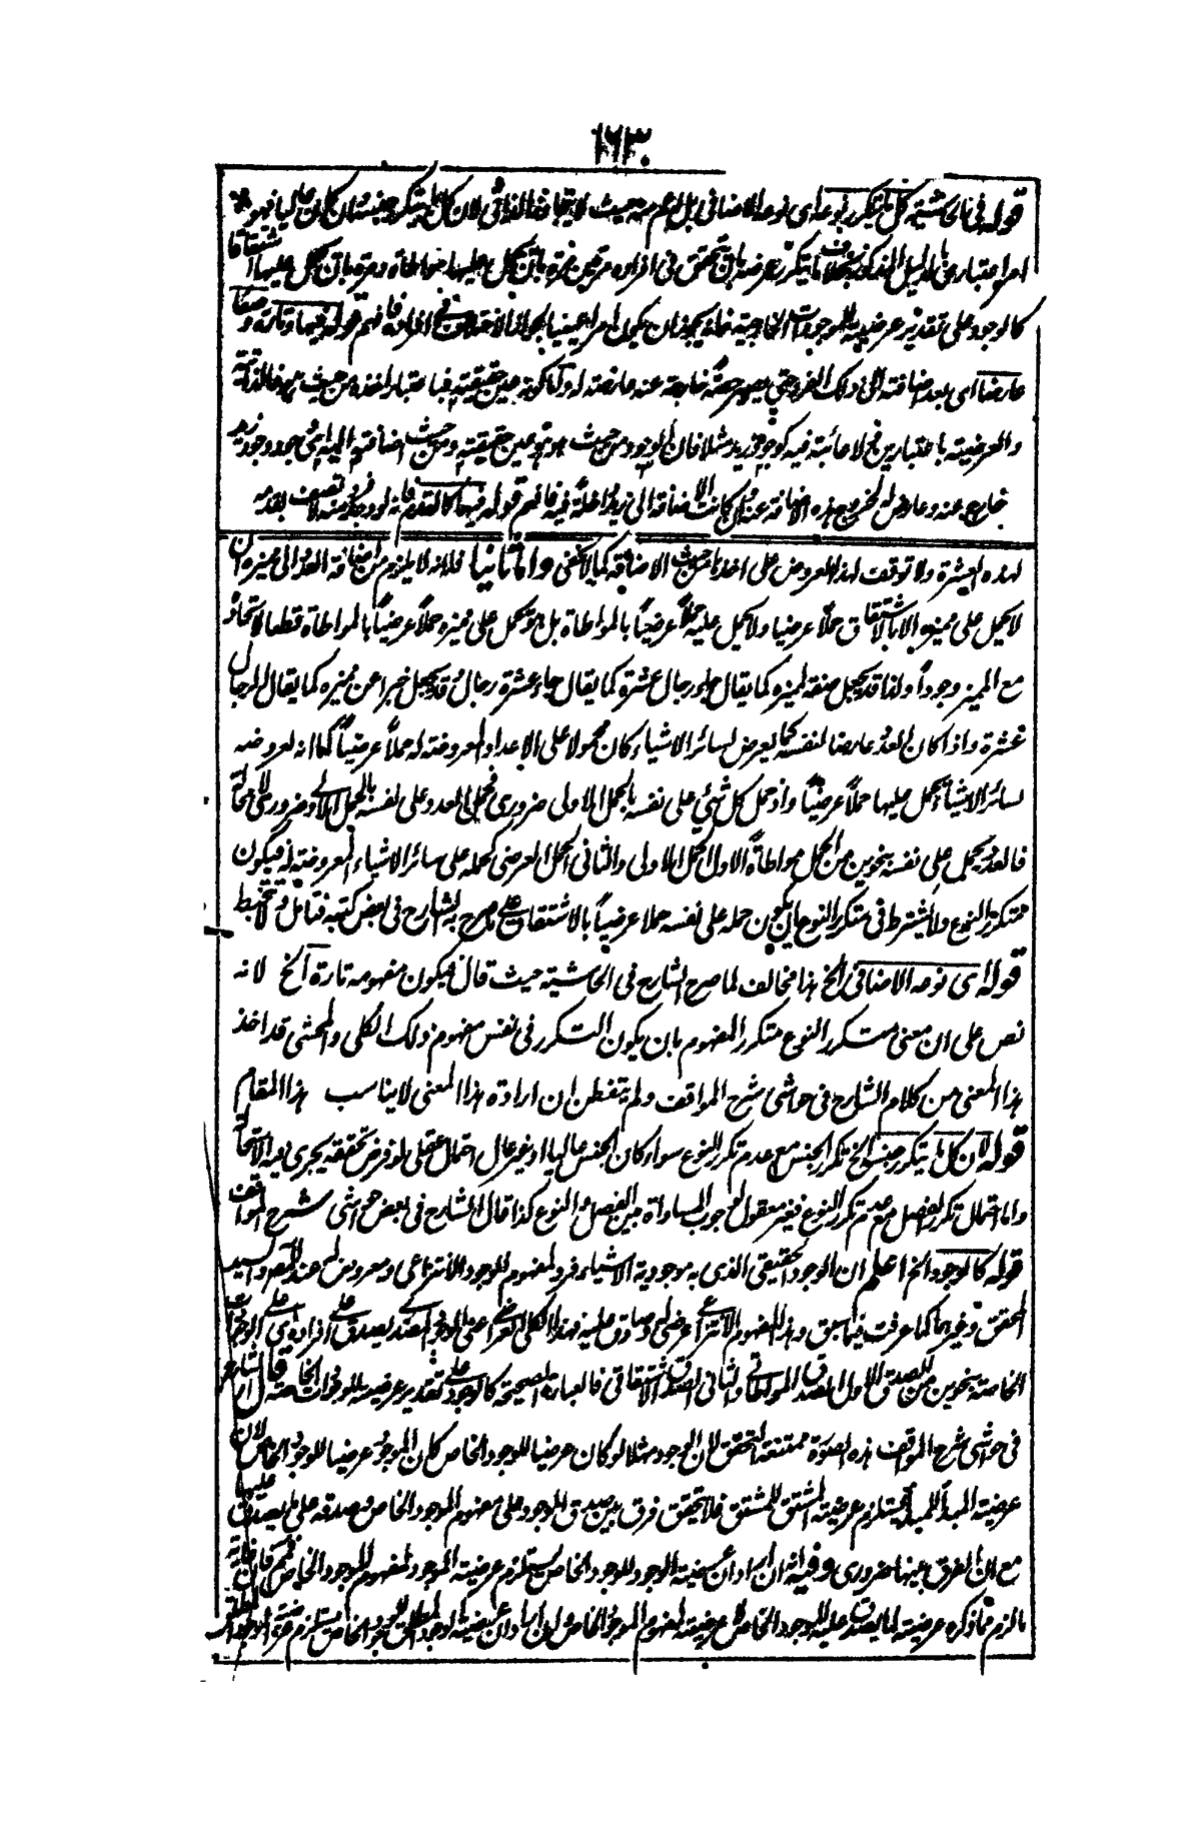 ١٦٣
قوله في الحاشية كل ما يتكرر نوعه اي نوعه الاضافي بل اعم منه بحيث لان كل ما يتكرر جنسه ان كان عاليا فهو
امر اعتباري بالدليل المذكور بخلاف ما يتكرر عرضه بان يتحقق في افراده مرتين مرة بان يحمل عليها مواطاة ومرة بان يحمل عليها اشتقاقا
كالوجود على تقدير عرضيته للموجودات الخارجية فانه يجوز ان يكون امرا عينيا افراده فافهم قوله فيها وتارة وصفا
عارضا اي بعد اضافته الى ذلك الفرد حتى يصير حصة خارجة عنه عارضة له واما كونه عين حقيقته فباعتبار اخذه من حيث هو فالذاتية
والعرضية باعتبارين فلا فيه كوجود زيد مثلا فان الوجود من حيث هو هو عين حقيقته ومن حيث اضافته اليه اي وجود وجود زيد
خارج عنه وعارض له لخروج هذه الاضافة عنه وان كانت الاضافة الى زيد داخلة فيه فافهم قوله فيها كالقدم فانه لو وجد فرد منه لاتصف بقدمه
لهذه العشرة ولا توقف لهذا العروض على اخذها من حيث الاضافة كما لا يخفى واما ثانيا فلانه لا يلزم من اضافة العدد الى مميزه ان
لا يحمل على مميزه الا بالاشتقاق حملا عرضيا ولا يحمل عليه حملا عرضيا بالمواطاة بل هو يحمل على مميزه حملا عرضيا بالمواطاة قطعا لاتحاده
مع المميز وجودا ولذا قد يجعل صفة لمميزه كما يقال رجال عشرة كما يقال جاء عشرة رجال وقد يجعل خبرا عن مميزه كما يقال الرجال
عشرة واذا كان العدد عارضا لنفسه كما يعرض لسائر الاشياء كان محمولا على الاعداد المعروضة له حملا عرضيا كما انه لعروضه
لسائر الاشياء يحمل عليها حملا عرضيا واذ حمل كل شيء على نفسه بالحمل الاولي ضروري فحمل العدد على نفسه بالحمل الاولي ضروري لا محالة
فالعدد يحمل على نفسه بنحوين من الحمل مواطاة الاول الحمل الاولي والثاني الحمل العرضي كحمله على سائر الاشياء المعروضة له فيكون
متكرر النوع ولا يشترط في متكرر النوع ان يكون حمله على نفسه حملا عرضيا بالاشتقاق على ما صرح به الشارح في بعض كتبه فتامل ولا تخبط
قوله اي نوعه الاضافي الخ هذا مخالف لما صرح الشارح في الحاشية حيث قال فيكون مفهومه تارة الخ لانه
نص على ان معنى متكرر النوع متكرر المفهوم بان يكون التكرر في نفس مفهوم ذلك الكلي والمحشي قد اخذ
هذا المعنى من كلام الشارح في حواشي شرح المواقف ولم يتفطن ان ارادة هذا المعنى لا يناسب هذا المقام
قوله لان كل ما يتكرر جنسه الخ تكرر الجنس مع عدم تكرر النوع سواء كان الجنس عاليا او غير عال احتمال عقلي لو فرض تحققه يجري فيه الاستحالة
واما احتمال تكرر الفصل مع عدم تكرر النوع فغير معقول لوجوب المساواة بين الفصل والنوع كذا قال الشارح في بعض حواشي شرح المواقف
قوله كالوجود الخ اعلم ان الوجود الحقيقي الذي به موجودية الاشياء فرد لمفهوم الوجود الانتزاعي ومعروض له عند المص والسيد
المحقق وغيرهما كما عرفت فيما سبق وهذا المفهوم الانتزاعي عرضي له وصادق عليه فهذا الكلي العرضي اعني الوجود المصدري يصدق على افراده اي على الوجودات
الخاصة بنحوين من الصدق الاول الصدق المواطاتي والثاني الصدق الاشتقاقي فالعبارة الصحيحة كالوجود على تقدير عرضيته للوجودات الخاصة قال الشارح
في حواشي شرح المواقف هذه الصورة ممتنعة التحقق لان الوجود مثلا لو كان عرضيا للوجود الخاص كان الموجود عرضيا للموجود الخاص لان
عرضية المبدا للمبدا يستلزم عرضية المشتق للمشتق فلا يتحقق فرق بين صدق الموجود على مفهوم الموجود الخاص وصدقه على ما يصدق عليها
مع ان الفرق بينها ضروري وفيه انه ان اراد ان عرضية الوجود للوجود الخاص يستلزم عرضية الموجود لمفهوم الموجود الخاص فان غاية
ما لزم مما ذكره عرضيته لما يصدق عليه الموجود الخاص لا عرضيته لمفهوم الموجود الخاص وان اراد ان عرضية الوجود المطلق للوجود الخاص يستلزم عرضية الموجود المطلق